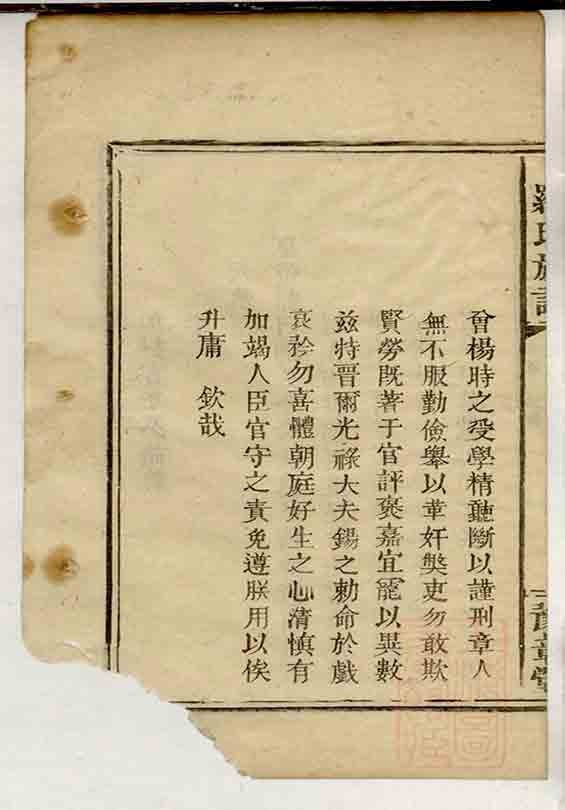 羅氏族譜
豫章堂
曾楊時之受學精聽斷以謹刑章人
無不服勤儉舉以革奸獘吏勿敢欺
賢勞既著于官評褒嘉宜寵以異數
兹特晋爾光祿大夫錫之勅命於戲
哀矜勿喜體朝庭好生之心清慎有
加竭人臣官守之責免遵朕用以俟
升庸 欽哉